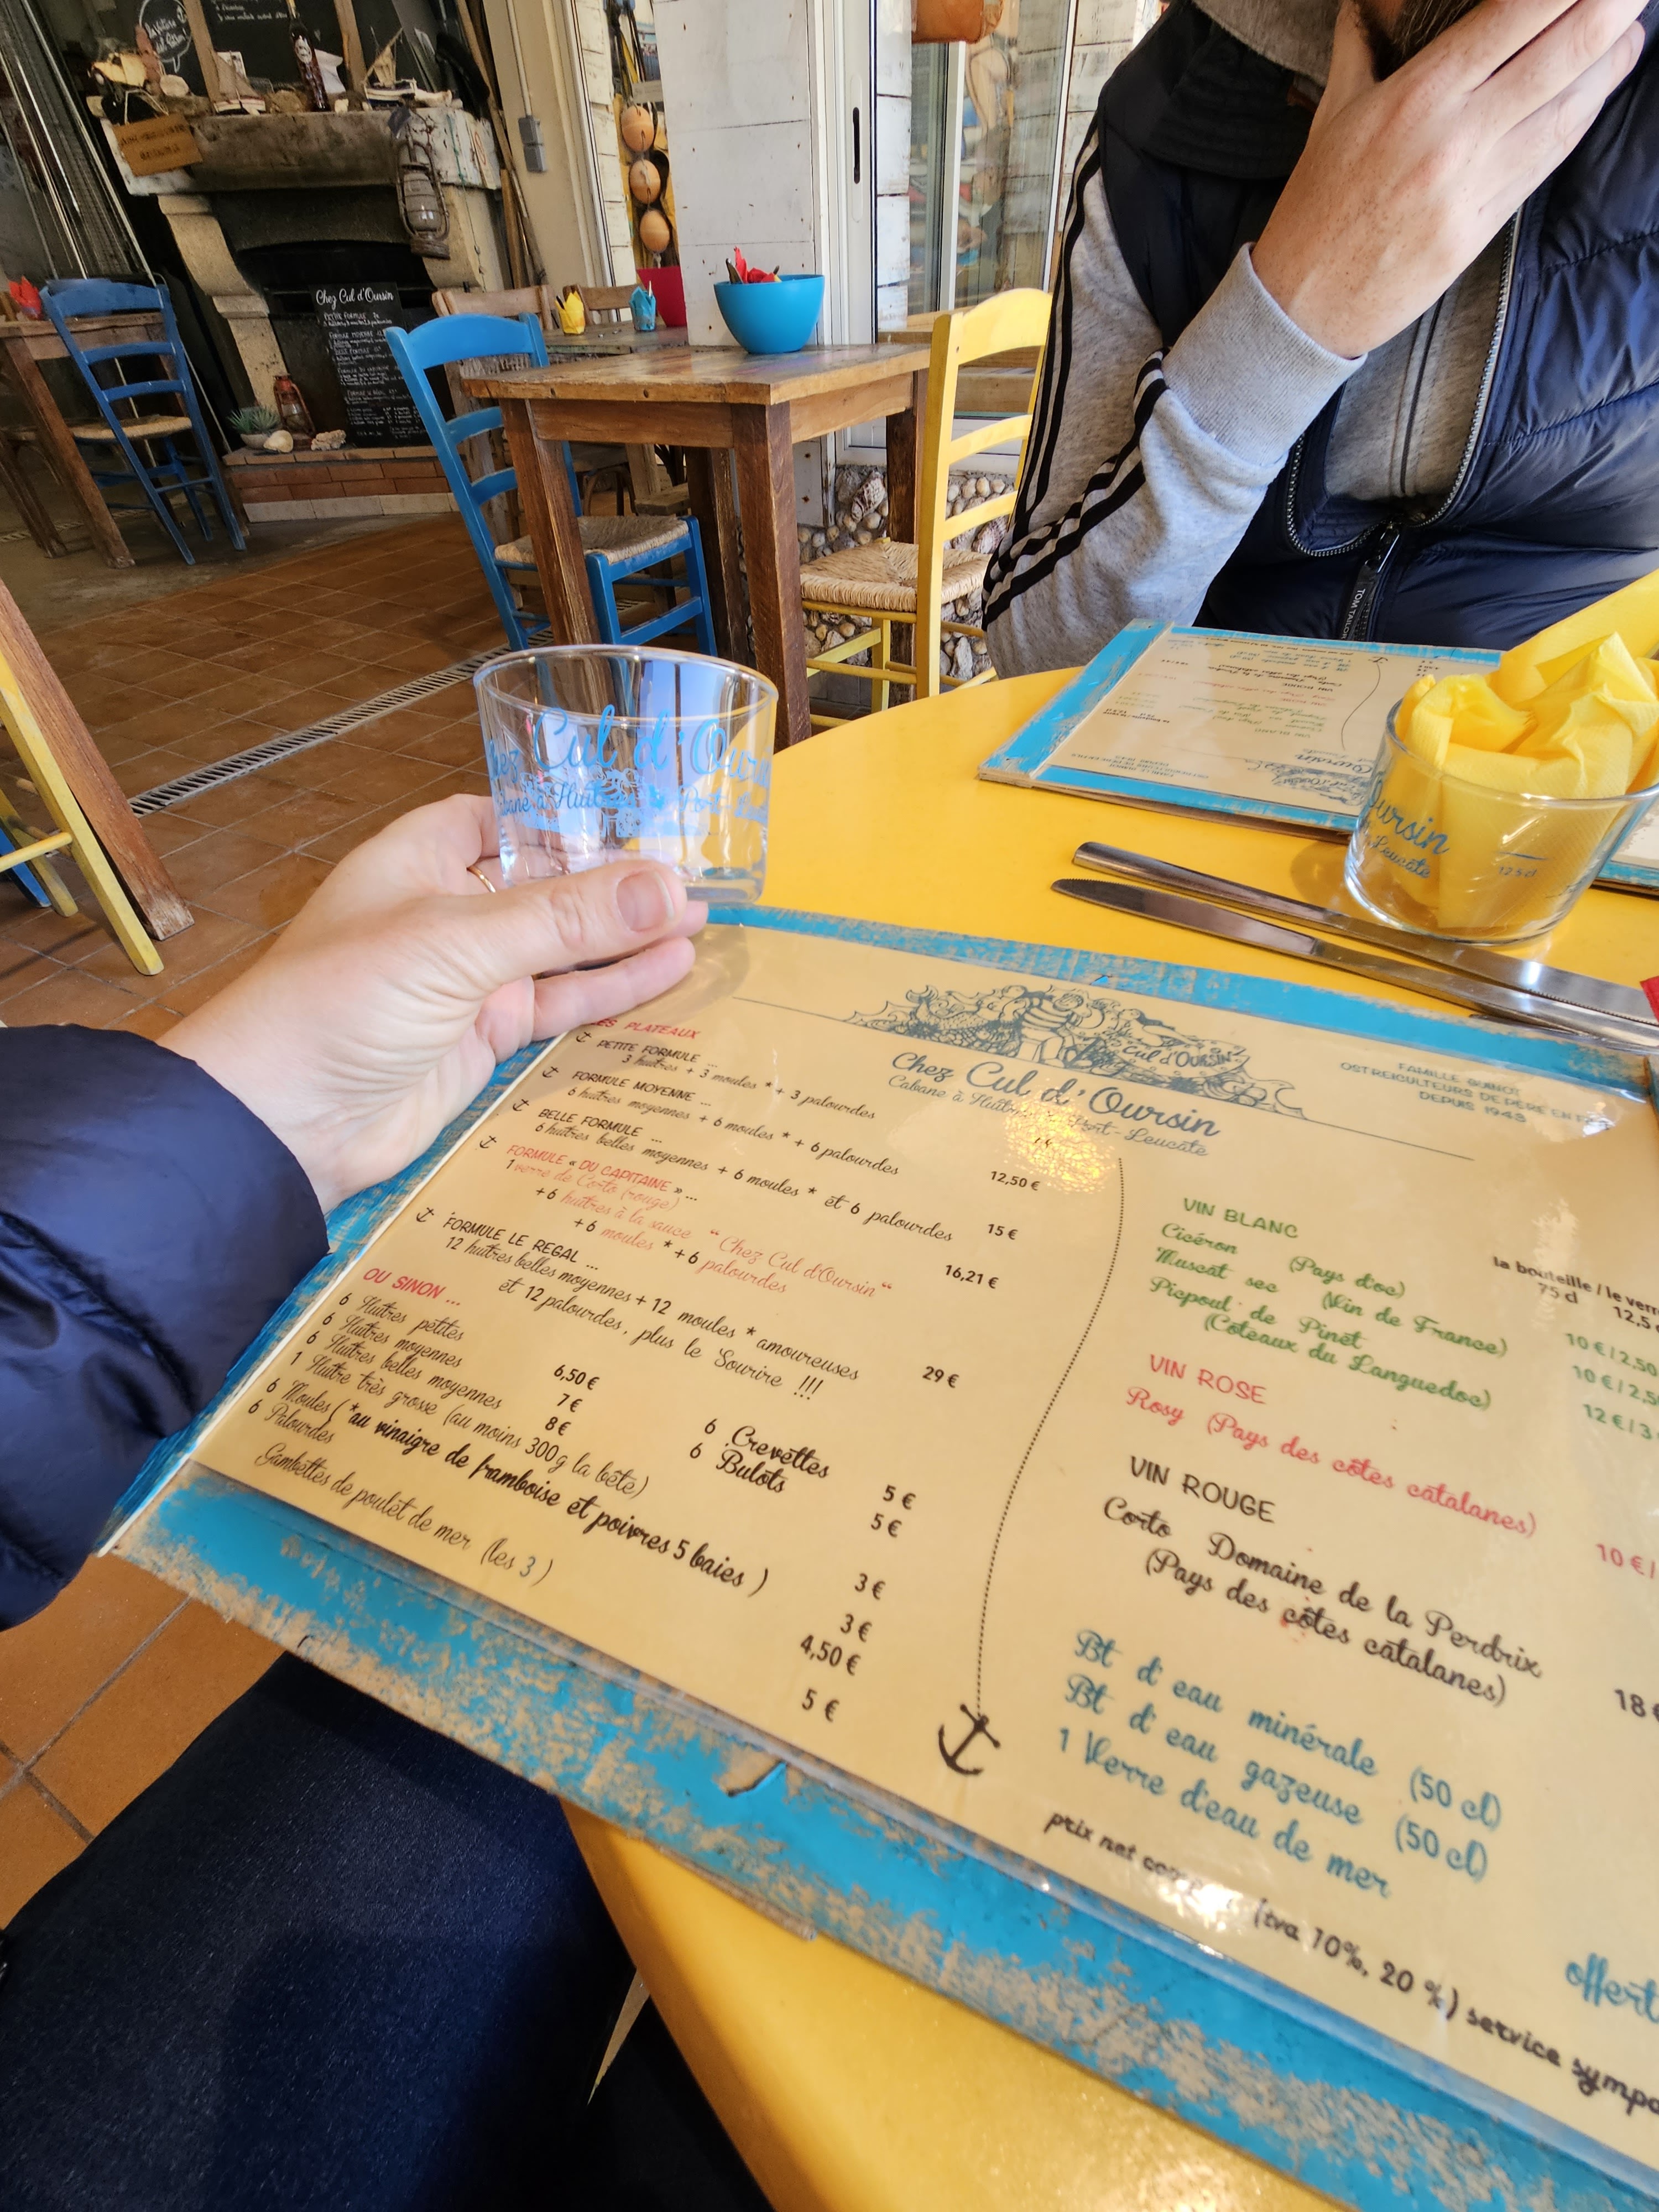 Chez Cul d'Oursin
Chez Cul d'Oursin
Port
Oursin
Leucate
12,5 cl
TOM TAILOR
Cul d'Oursin
Chez Cul d'Oursin
Cabane à Huîtres Port-Leucate
FAMILLE GUINOT
OSTREICULTEURS DE PERE EN
DEPUIS 1948
LES PLATEAUX
PETITE FORMULE ...
3 huîtres + 3 moules * + 3 palourdes
FORMULE MOYENNE ...
6 huîtres moyennes + 6 moules * + 6 palourdes
12,50 €
BELLE FORMULE ...
6 huîtres belles moyennes + 6 moules * et 6 palourdes
15 €
FORMULE « DU CAPITAINE » ...
1 verre de Corto (rouge)
+6 huîtres à la sauce “ Chez Cul d'Oursin “
+6 moules * +6 palourdes
16,21 €
FORMULE LE REGAL ...
12 huîtres belles moyennes + 12 moules * amoureuses
et 12 palourdes, plus le Sourire !!!
29 €
OU SINON ...
6 Huîtres petites
6 Huîtres moyennes
6 Huîtres belles moyennes
1 Huître très grosse (au moins 300g la bête)
6 Moules (*au vinaigre de framboise et poivres 5 baies )
6 Palourdes
Gambettes de poulet de mer (les 3 )
6,50 €
7 €
8 €
6 Crevettes
6 Bulots
5 €
5 €
3 €
3 €
4,50 €
5 €
VIN BLANC
la bouteille / le verre
75 cl 12,5
Cicéron (Pays d'oc)
10 € / 2,50
Muscat sec (Vin de France)
10 € / 2,5
Picpoul de Pinet
(Coteaux du Languedoc)
12 € / 3
VIN ROSE
Rosy (Pays des côtes catalanes)
10 € /
VIN ROUGE
Corto Domaine de la Perdrix
(Pays des côtes catalanes)
18 €
Bt d'eau minérale (50 cl)
Bt d'eau gazeuse (50 cl)
1 Verre d'eau de mer
offert
prix net (tva 10%, 20 %) service sympa